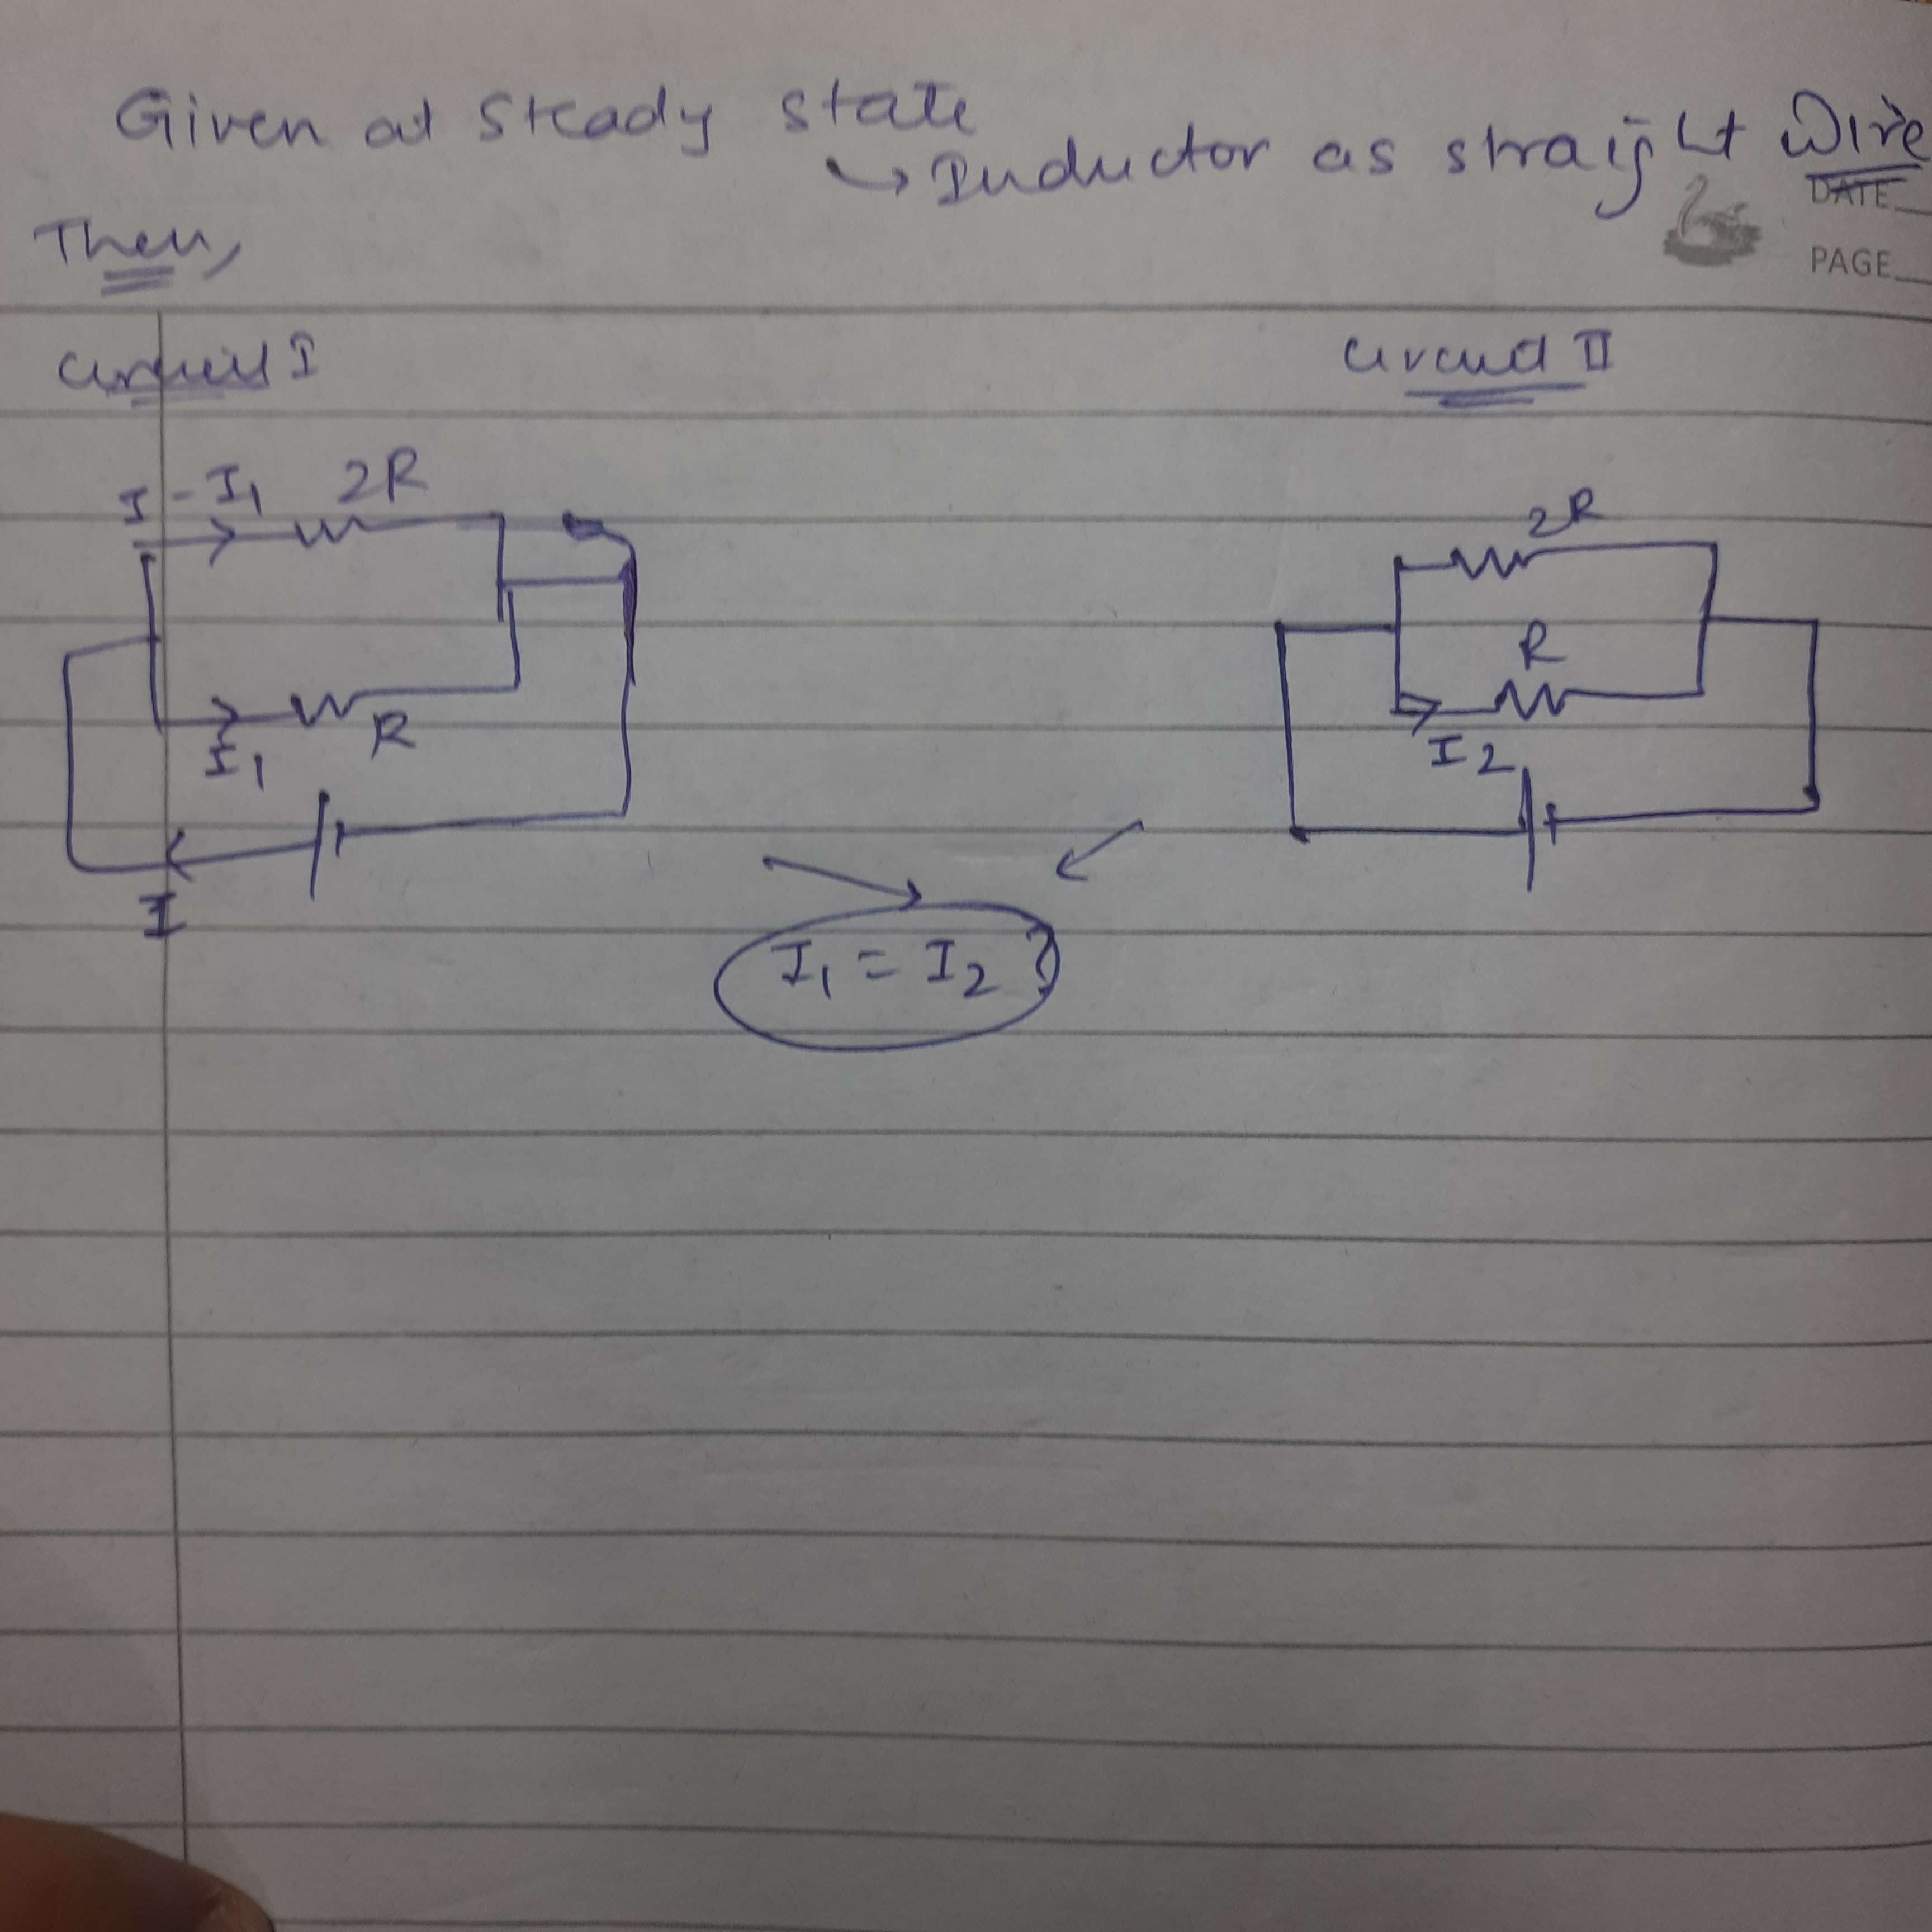 Given at Steady state
↳ Inductor as straight Wire
DATE
PAGE
Then,
Circuit I
Circuit II
I - I₁ 2R
2R
R
R
I₁
I2
I
I₁ = I₂ ?